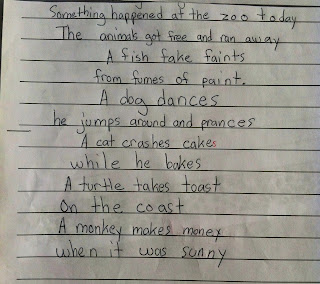 Something happened at the zoo today
The animals got free and ran away
A fish fake faints
from fumes of paint.
A dog dances
he jumps around and prances
A cat crashes cakes
while he bakes
A turtle takes toast
On the coast
A monkey makes money
when it was sunny